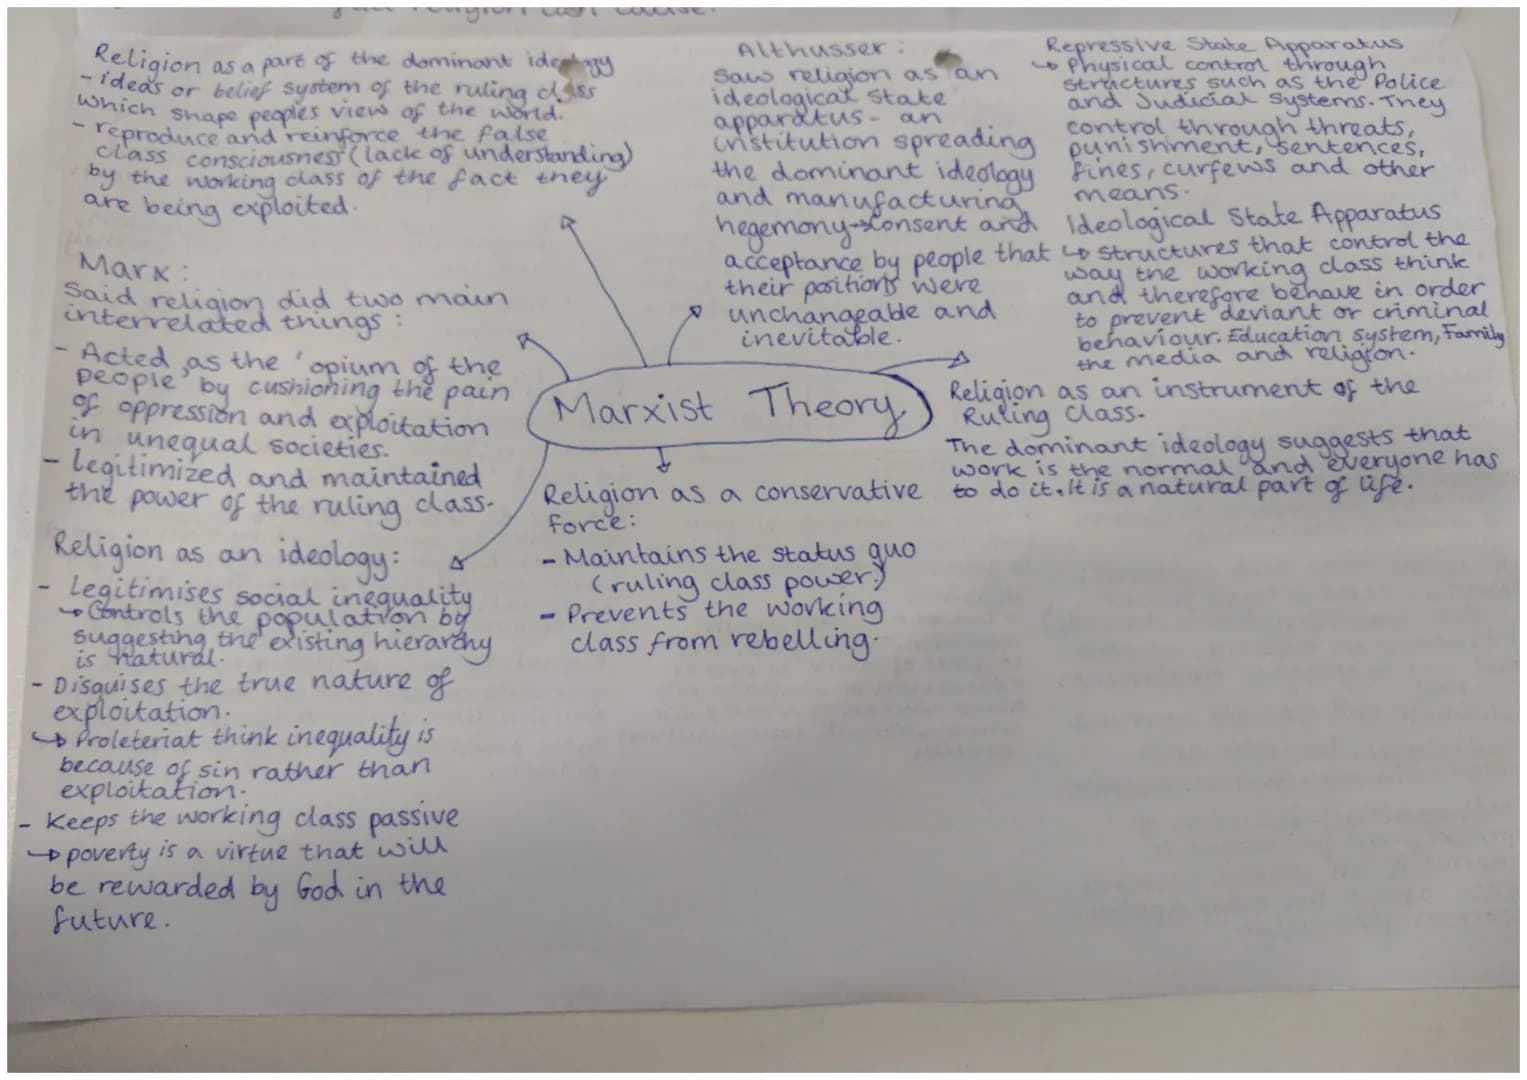 Religion as a part of the dominant ideology
- ideas or belief system of the ruling class
which shape peoples view of the world.
- reproduce and reinforce the false
class consciousness (lack of understanding)
by the working class of the fact they
are being exploited.
Marx:
Said religion did two main
interrelated things:
- Acted as the 'opium of the
people' by cushioning the pain
of oppression and exploitation
in unequal societies.
- Legitimized and maintained
the power of the ruling class.
Religion as an ideology:
- Legitimises social inequality
↳ Controls the population by
suggesting the existing hierarchy
is natural.
- Disguises the true nature of
exploitation.
↳ Proleteriat think inequality is
because of sin rather than
exploitation.
- Keeps the working class passive
↳ poverty is a virtue that will
be rewarded by God in the
future.
Marxist Theory
Religion as a conservative
force:
- Maintains the status quo
(ruling class power.)
- Prevents the working
class from rebelling.
Althusser:
Saw religion as an
ideological state
apparatus - an
institution spreading
the dominant ideology
and manufacturing
hegemony → consent and
acceptance by people that
their positions were
unchangeable and
inevitable.
Repressive State Apparatus
↳ Physical control through
structures such as the Police
and Judicial systems. They
control through threats,
punishment, sentences,
fines, curfews and other
means.
Ideological State Apparatus
↳ structures that control the
way the working class think
and therefore behave in order
to prevent deviant or criminal
behaviour. Education system, Family
the media and religion.
Religion as an instrument of the
Ruling Class.
The dominant ideology suggests that
work is the normal and everyone has
to do it. It is a natural part of life.